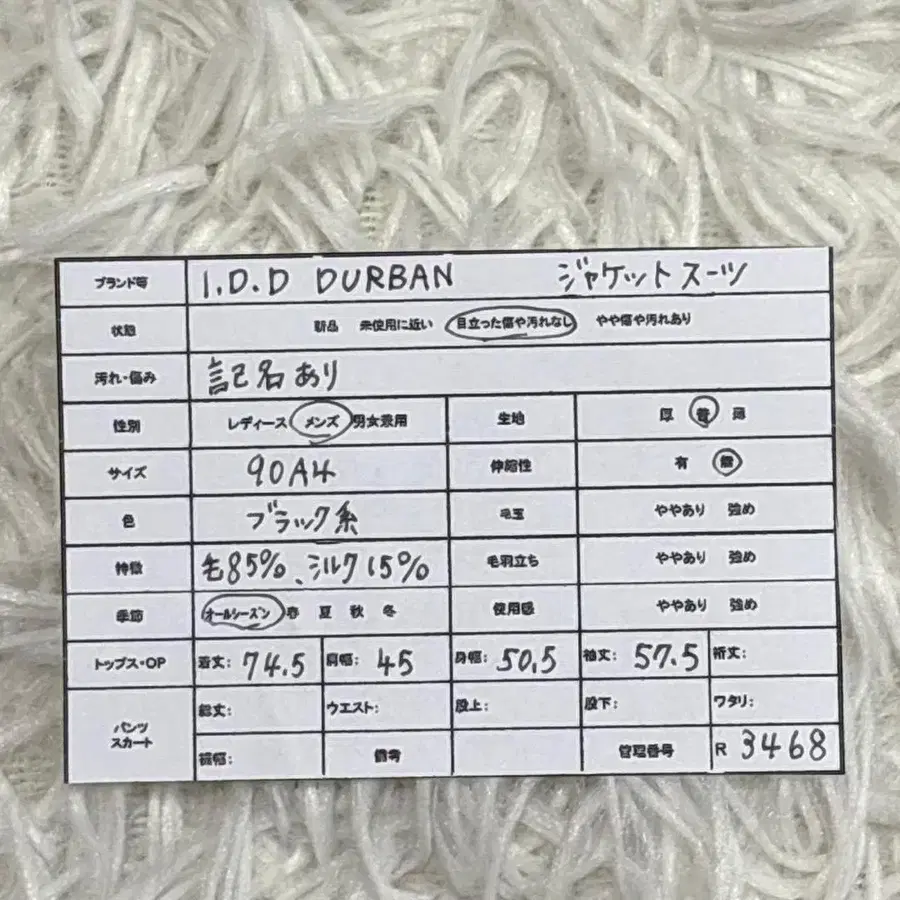 ブランド等 I.D.D DURBAN ジャケットスーツ
状態 新品 未使用に近い 目立った傷や汚れなし やや傷や汚れあり
汚れ・傷み 記名あり
性別 レディース メンズ 男女兼用 生地 厚 普 薄
サイズ 90A4 伸縮性 有 無
色 ブラック系 毛玉 ややあり 強め
特徴 毛85%、シルク15% 毛羽立ち ややあり 強め
季節 オールシーズン 春 夏 秋 冬 使用感 ややあり 強め
トップス・OP 着丈: 74.5 肩幅: 45 身幅: 50.5 袖丈: 57.5 裄丈:
パンツ スカート 総丈: ウエスト: 股上: 股下: ワタリ:
裾幅: 備考 管理番号 R 3468